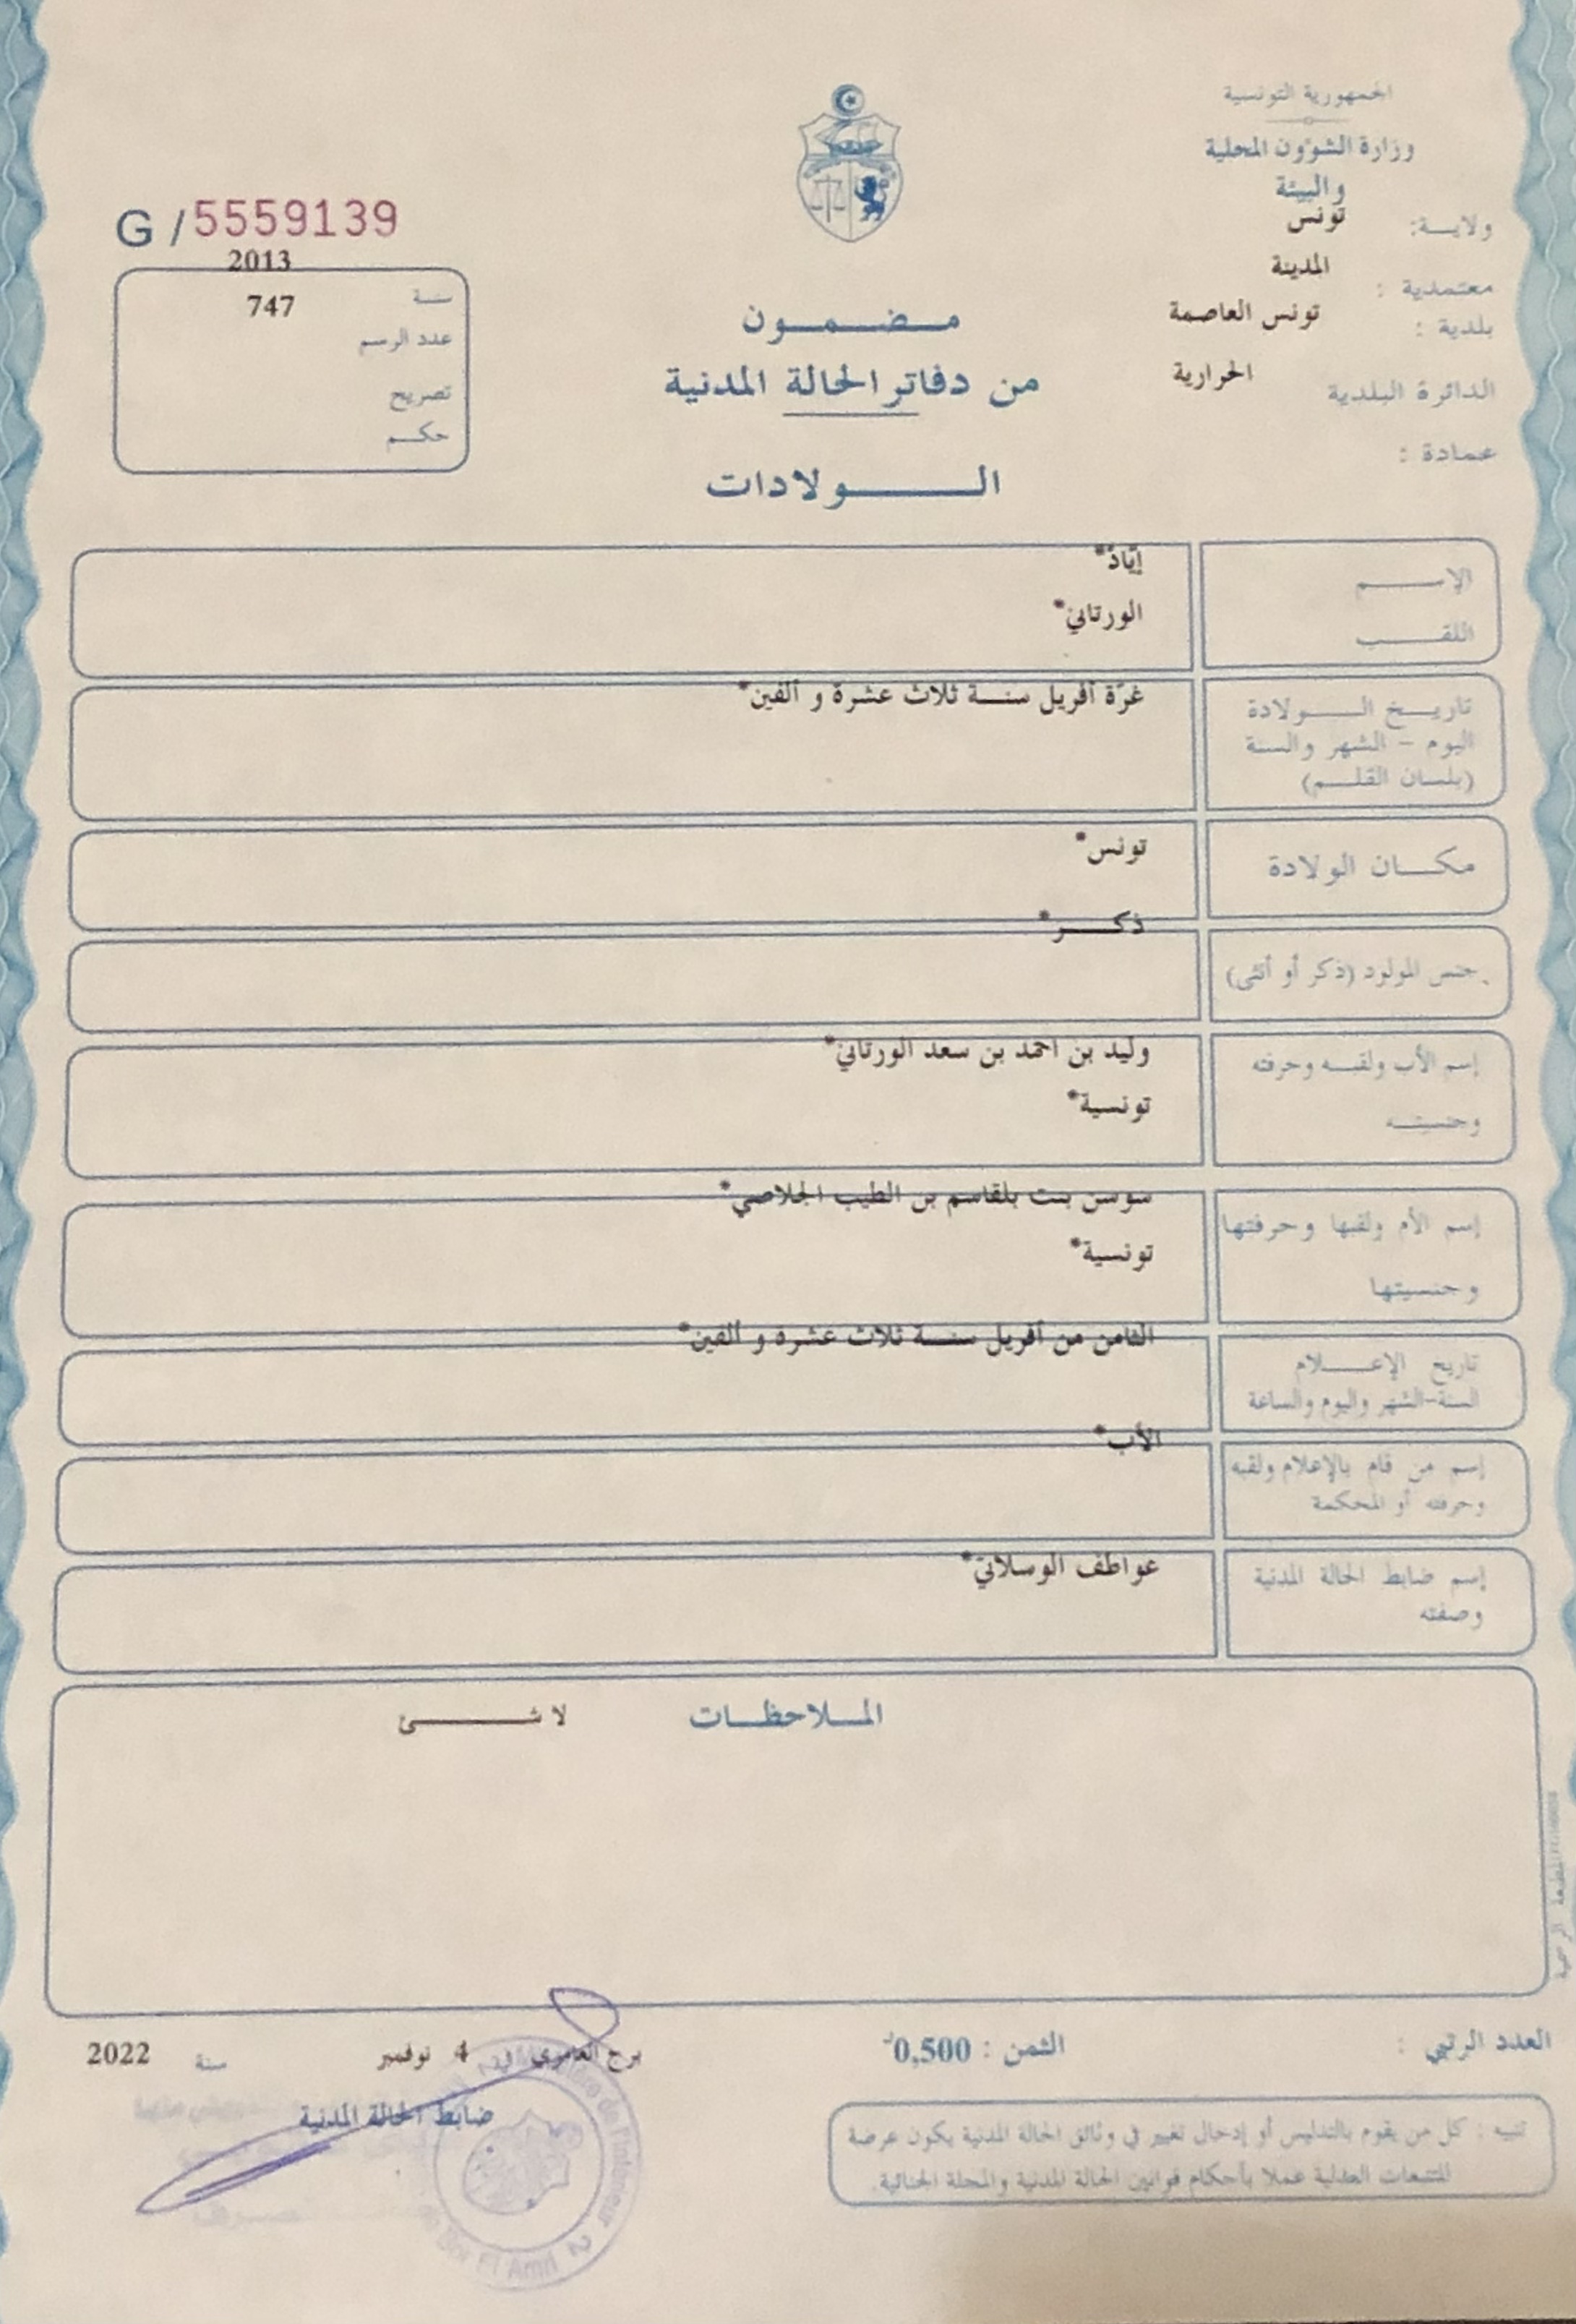 الجمهورية التونسية
وزارة الشؤون المحلية
والبيئة
ولايـــة: تونس
معتمدية : المدينة
بلدية : تونس العاصمة
الدائرة البلدية الحرارية
عمادة :
G / 5559139
سنة 2013
عدد الرسم 747
تصريح
حكـــم
مـــضـــمـــون
من دفاتر الحالة المدنية
الـــــولادات
الإســـــم إيّاد*
اللقـــــب الورتاني*
تاريـــخ الـــــولادة غرّة أفريل سنـــة ثلاث عشرة و ألفين*
اليوم – الشهر والسنة
(بلســان القلـــم)
مكـــان الولادة تونس*
جنس المولود (ذكر أو أنثى) ذكـــر*
إسم الأب ولقبـــه وحرفته وليد بن احمد بن سعد الورتاني*
وجنسيتـــه تونسية*
إسم الأم ولقبها وحرفتها سوسن بنت بلقاسم بن الطيب الجلاصي*
وجنسيتها تونسية*
تاريخ الإعـــــلام الثامن من أفريل سنـــة ثلاث عشرة و ألفين*
السنة-الشهر واليوم والساعة
إسم من قام بالإعلام ولقبه الأب*
وحرفته أو المحكمة
إسم ضابط الحالة المدنية عواطف الوسلاتي*
وصفته
المـــلاحظـــات لا شـــــئ
المطبعة الرسمية
العدد الرتبي :
الثمن : 0,500د
برج العامري في 4 نوفمبر سنة 2022
ضابط الحالة المدنية
تنبيه : كل من يقوم بالتدليس أو إدخال تغيير في وثائق الحالة المدنية يكون عرضة
للتتبعات العدلية عملا بأحكام قوانين الحالة المدنية والمجلة الجنائية.
de l'Intérieur
de Borj El Amri